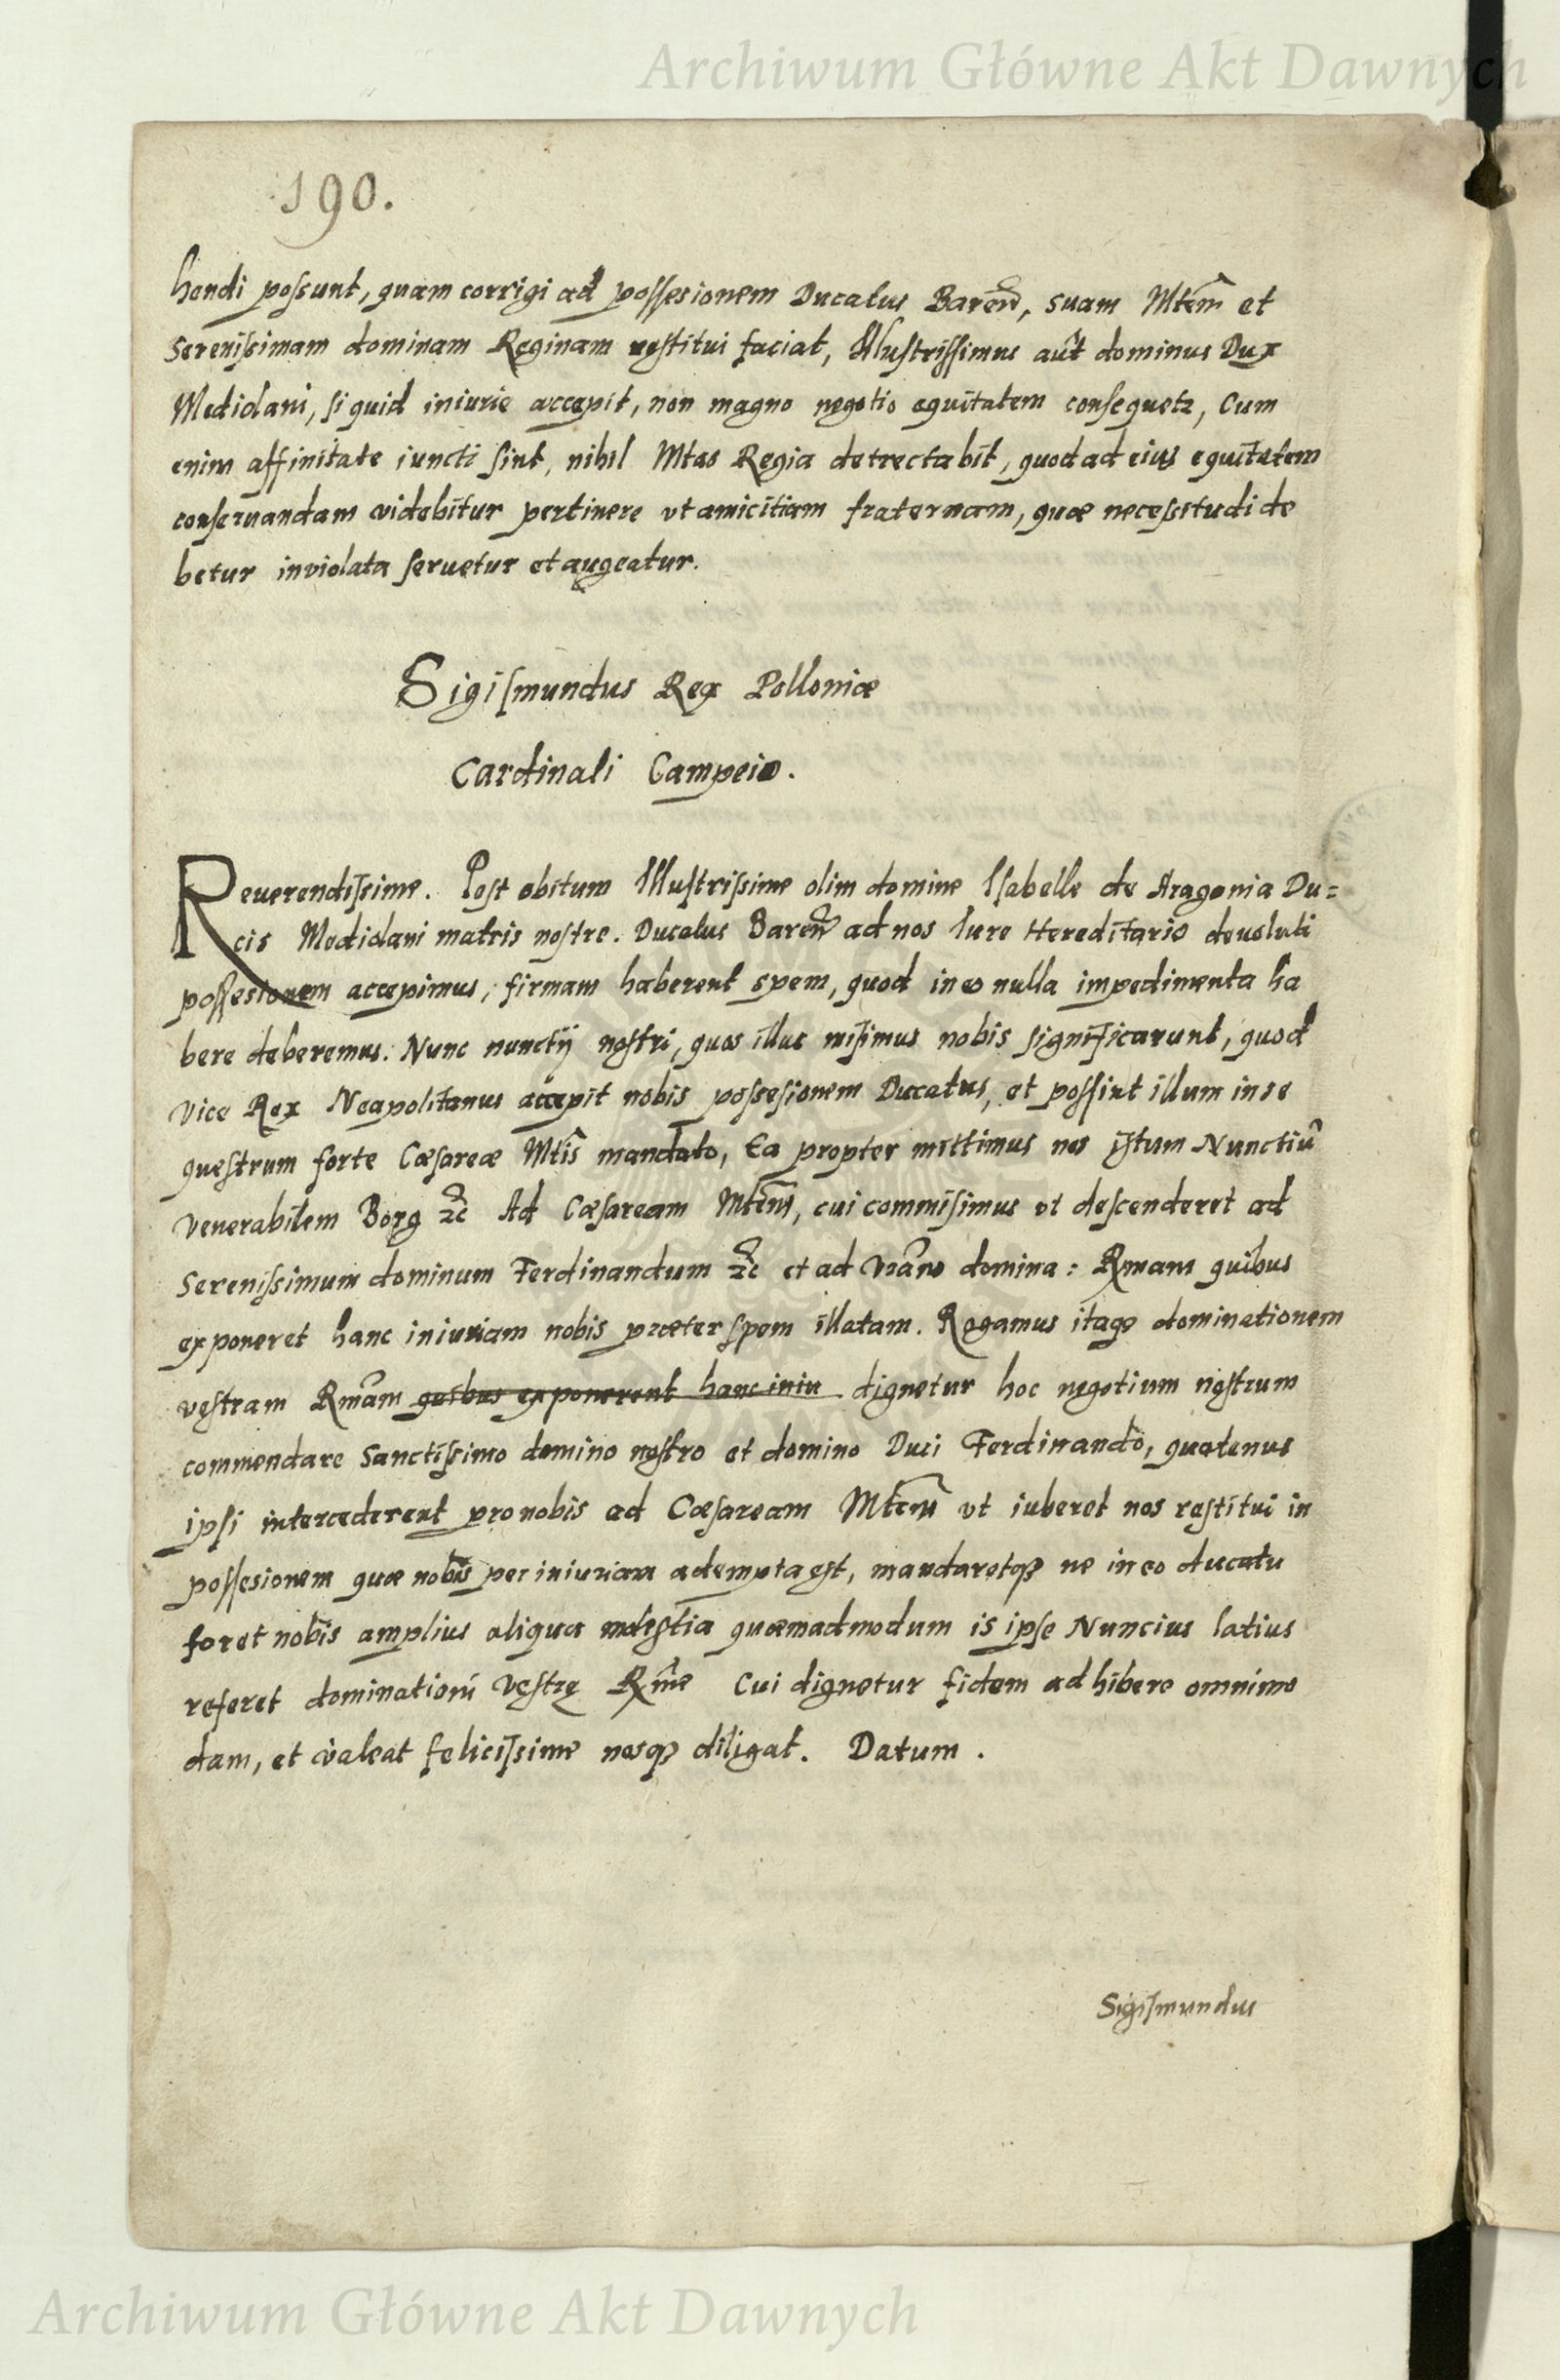 Archiwum Główne Akt Dawnych
190.
hendi possunt, quam corrigi ad possesionem Ducatus Bareñ, suam Mtem̃ et
Serenissimam dominam Reginam restitui faciat, Illustrissimus aũt dominus Dux
Mediolani, si quid iniurie accepit, non magno negotio equitatem consequetz, Cum
enim affinitate iuncti sint, nihil Mtas Regia detrectabit, quod ad eius equitatem
conseruandam videbitur pertinere vt amicitiam fraternam, quæ necessitudi de
betur inviolata seruetur et augeatur.
Sigismundus Rex Polloniæ
Cardinali Campeio.
Reuerendissime. Post obitum Illustrissime olim domine Isabelle de Aragonia Du=
cis Mediolani matris nostre. Ducatus Bareñ ad nos Iure Hereditario deuoluti
possesionem accepimus, firmam haberent spem, quod in eo nulla impedimenta ha
bere deberemus. Nunc nunctij nostri, quos illuc misimus nobis significarunt, quod
Vice Rex Neapolitanus accepit nobis possesionem Duccatus, et possint illum in se
questrum forte Cæsareæ Mtis̃ mandato, Ea propter mittimus nos istum Nunctiũ
venerabilem Borg ꝛc̃ Ad Cæsaream Mtem̃, cui commisimus vt descenderet ad
Serenissimum dominum Ferdinandum ꝛc̃ et ad domina: Rmam quibus
exponeret hanc iniuriam nobis præter spem illatam. Rogamus itaqꝫ dominationem
vestram Rmãm quibus exponerent hanc iniu dignetur hoc negotium nostrum
commendare Sanctissimo domino nostro et domino Duci Ferdinando, quatenus
ipsi intercederent pro nobis ad Cæsaream Mtem̃ vt iuberet nos restitui in
possesionem quæ nobis per iniuriam adempta est, mandaretqꝫ ne in eo ducatu
foret nobis amplius aliqua molestia quæmadmodum is ipse Nuncius latius
referet dominationi Vestrę Rm̃e Cui dignetur fidem adhibere omnimo
dam, et valeat felicissime nosqꝫ diligat. Datum .
Sigismundus
Archiwum Główne Akt Dawnych